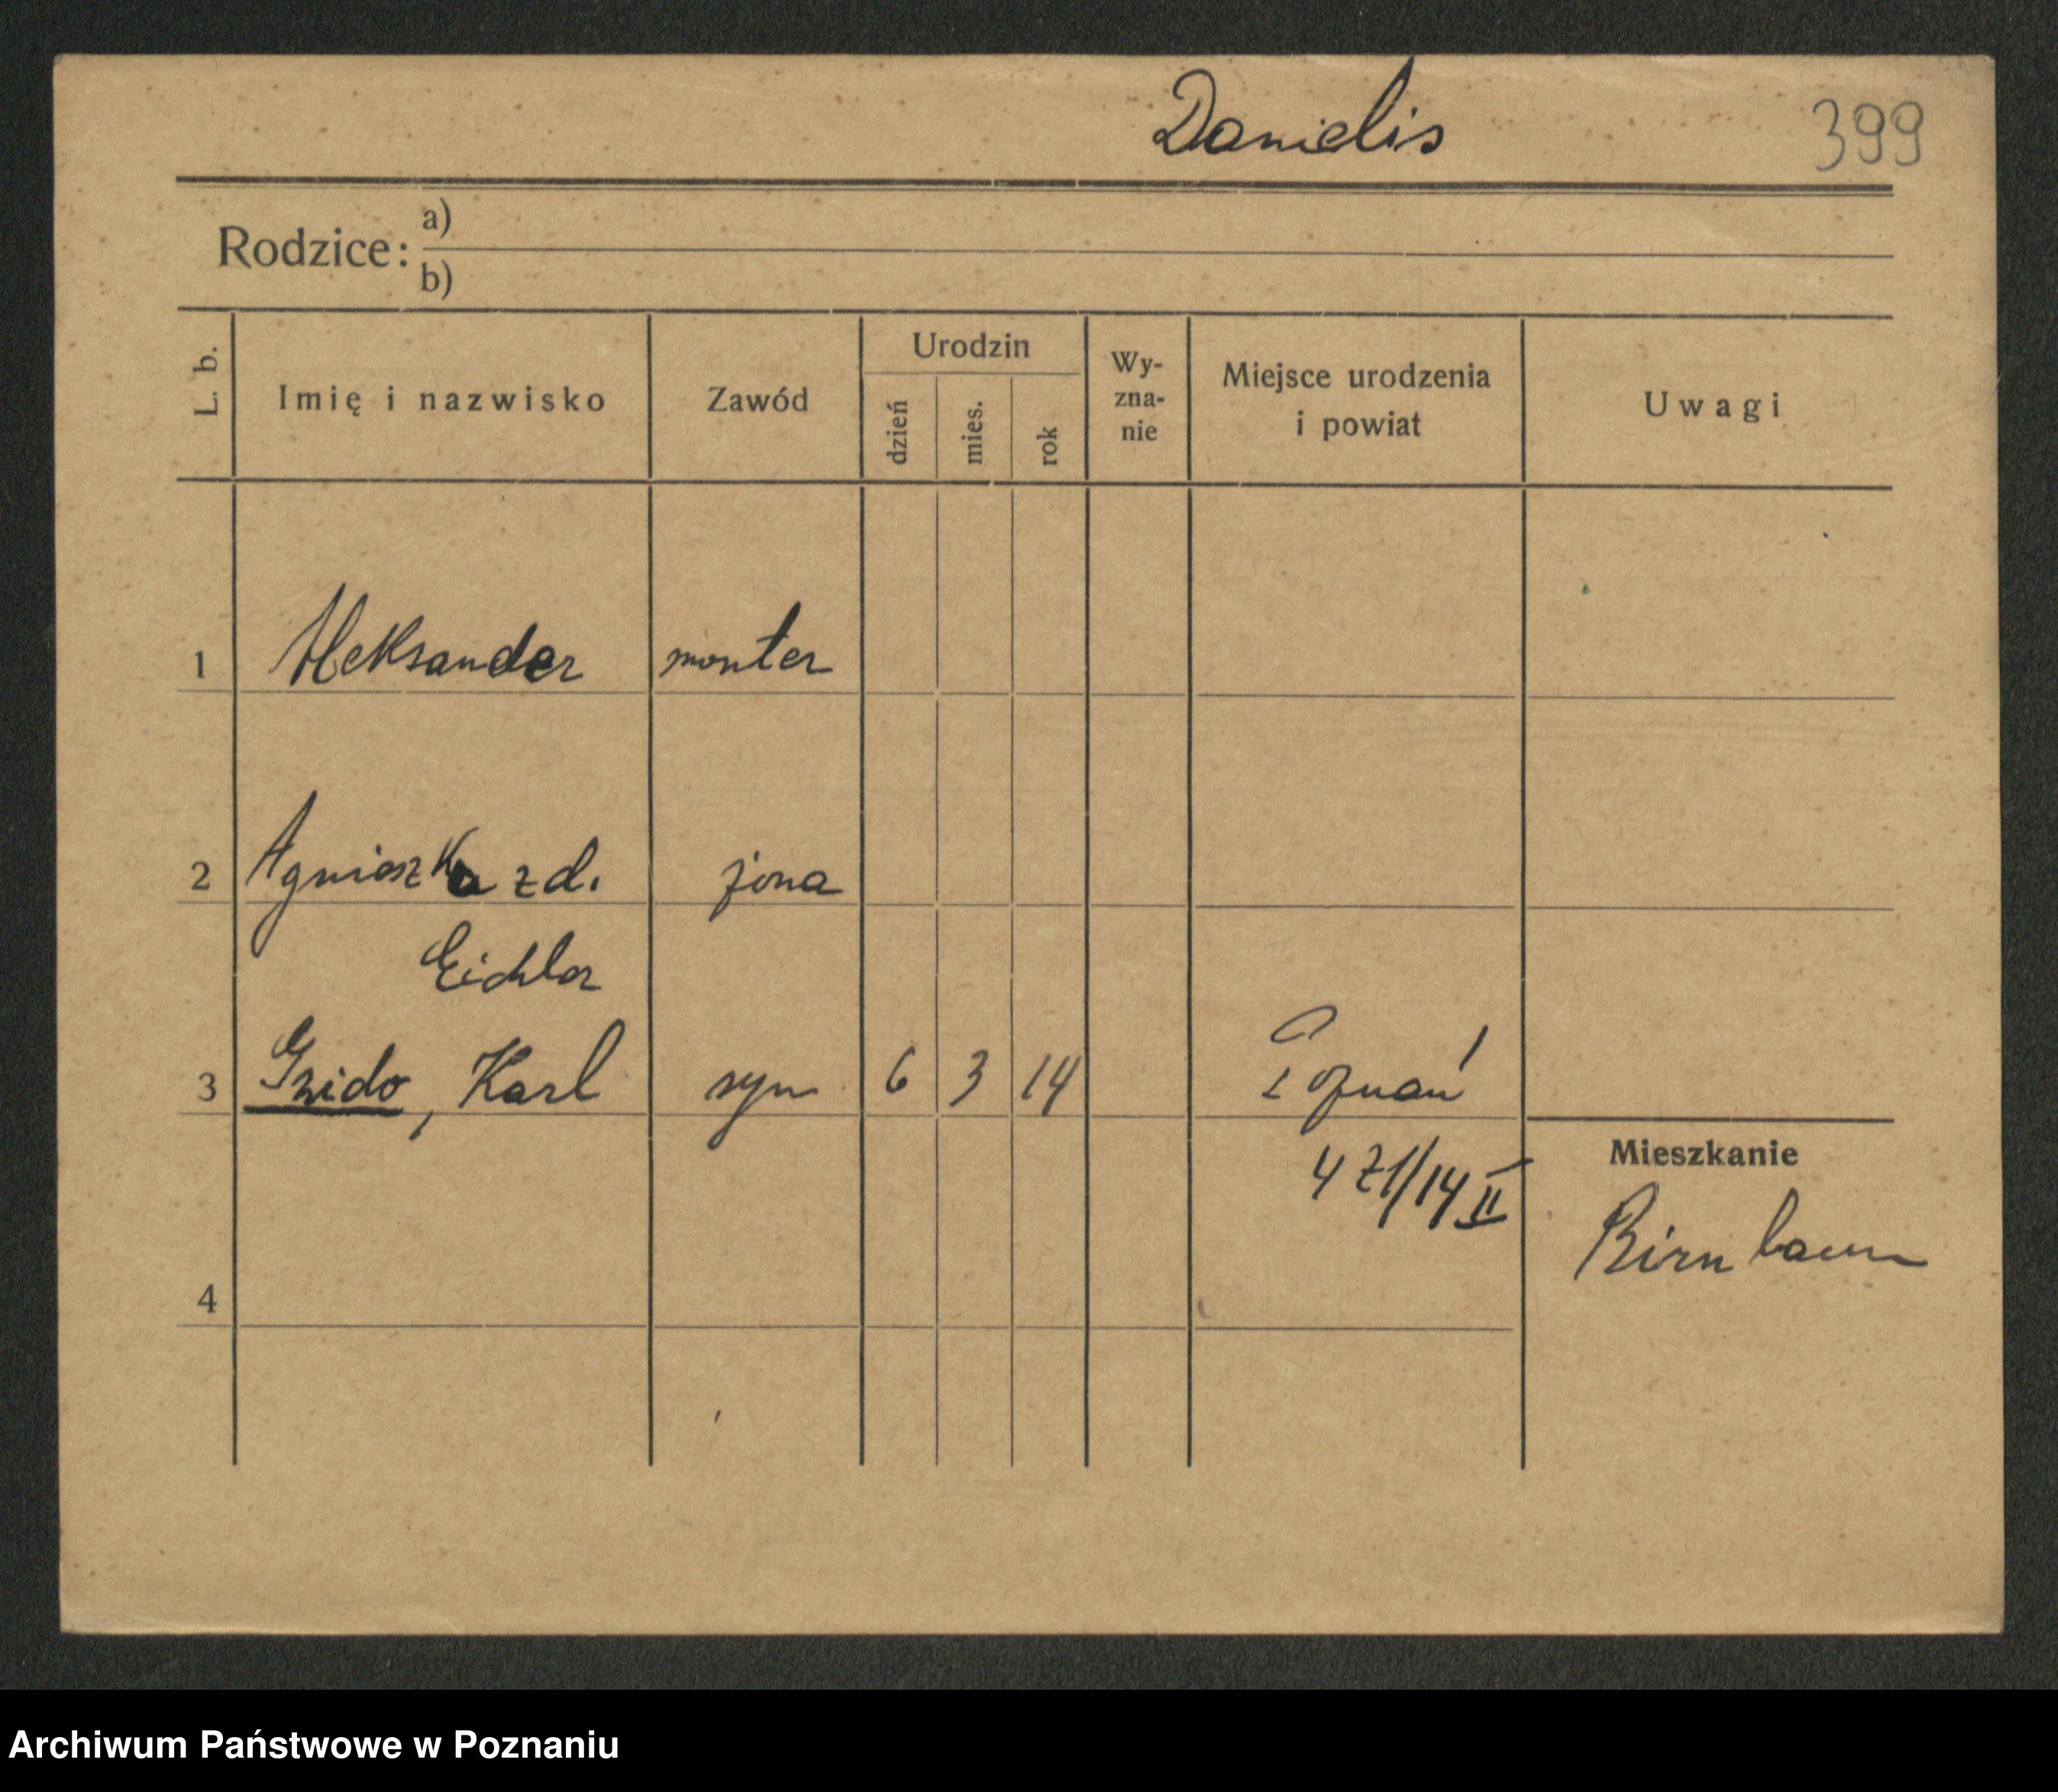 Danielis
399
Rodzice: a)
b)
L. b.
Imię i nazwisko
Zawód
Urodzin
dzień
mies.
rok
Wy-
zna-
nie
Miejsce urodzenia
i powiat
Uwagi
1 Aleksander monter
2 Agnieszka z d. żona
Eichler
3 Gwido, Karl syn 6 3 14 Poznań
421/14 II
Mieszkanie
Birnbaum
4
Archiwum Państwowe w Poznaniu